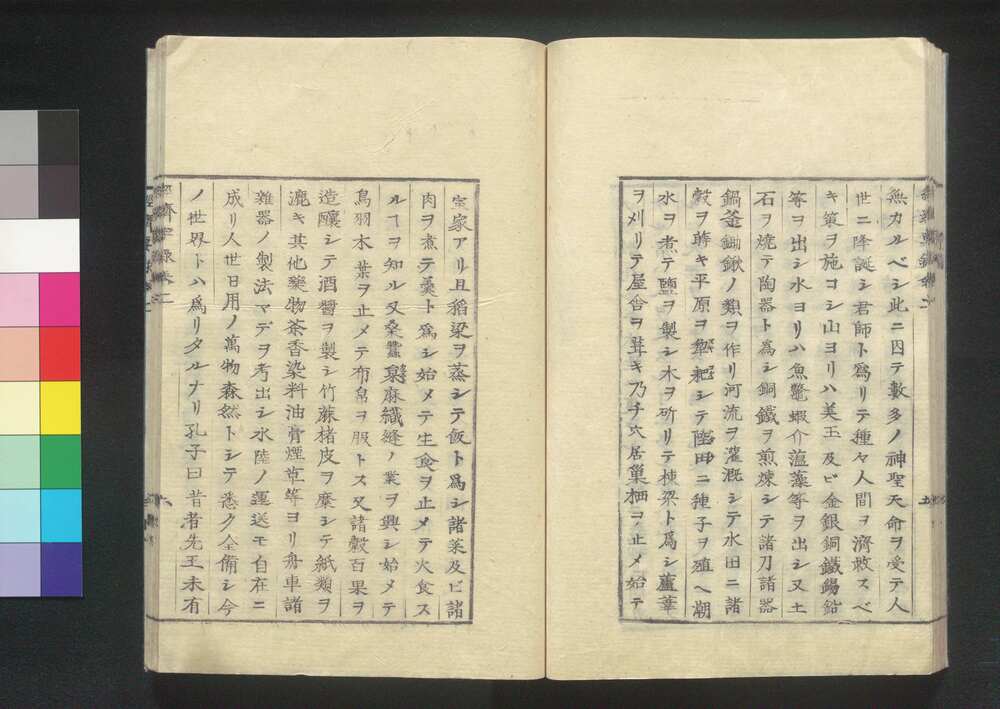 無カルベシ此ニ因テ數多ノ神聖天命ヲ受テ人
世ニ降誕シ君師ト爲リテ種々人間ヲ濟救スベ
キ策ヲ施コシ山ヨリハ美玉及ビ金銀銅鐵錫鉛
等ヲ出シ水ヨリハ魚鼈蝦介薀藻等ヲ出シ又土
石ヲ燒テ陶器ト爲シ銅鐵ヲ煎煉シテ諸刀諸器
鍋釜鋤鍬ノ類ヲ作リ河流ヲ灌漑シテ水田ニ諸
穀ヲ蒔キ平原ヲ犂耙シテ陸田ニ種子ヲ殖ヘ潮
水ヲ煮テ鹽ヲ製シ木ヲ斫リテ棟梁ト爲シ蘆葦
ヲ刈リテ屋舍ヲ葺キ乃チ穴居巢栖ヲ止メ始テ
室家アリ且稻粱ヲ蒸シテ飯ト爲シ諸菜及ビ諸
肉ヲ煮テ羹ト爲シ始メテ生食ヲ止メテ火食ス
ルヿヲ知ル又桑蠶枲麻織縫ノ業ヲ興シ始メテ
鳥羽木葉ヲ止メテ布帛ヲ服トス又諸穀百果ヲ
造釀シテ酒醤ヲ製シ竹蔴楮皮ヲ糜シテ紙類ヲ
漉キ其他藥物茶香染料油膏煙草等ヨリ舟車諸
雜器ノ製法マデヲ考出シ水陸ノ運送モ自在ニ
成リ人世日用ノ萬物森然トシテ悉ク全備シ今
ノ世界トハ爲リタルナリ孔子曰昔者先王未有